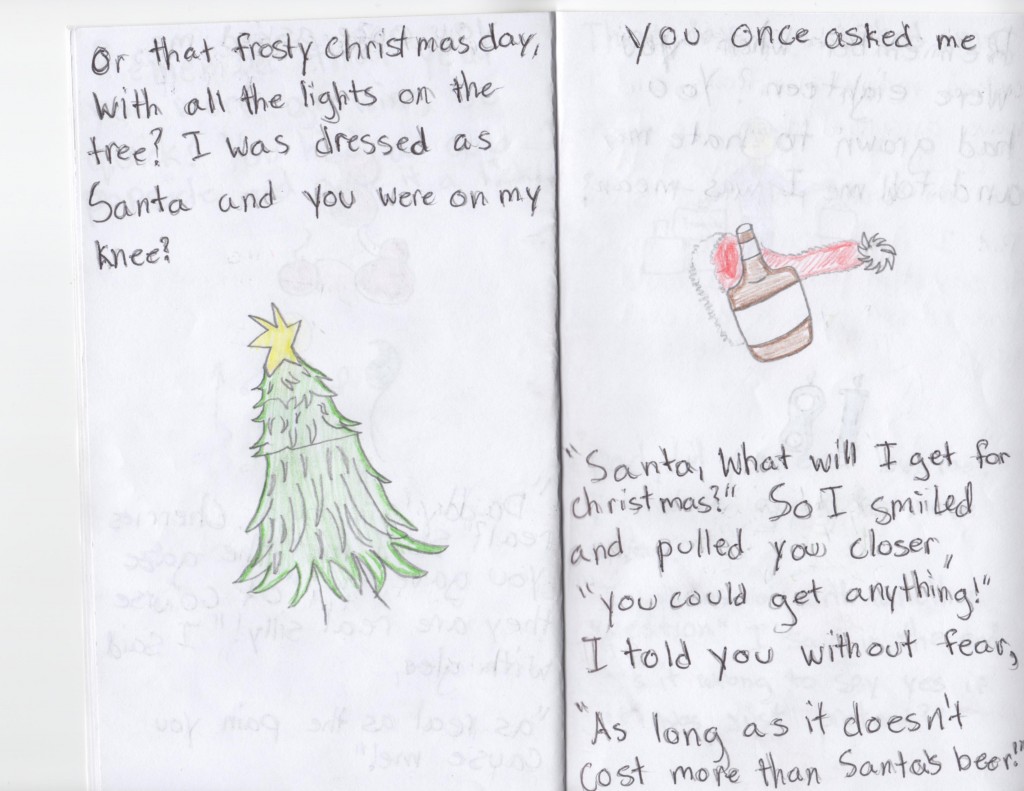 Or that frosty christmas day,
with all the lights on the
tree? I was dressed as
Santa and you were on my
knee?
you once asked me
"Santa, what will I get for
christmas?" So I smiiled
and pulled you closer,
"you could get anything!"
I told you without fear,
"As long as it doesn't
cost more than Santa's beer."